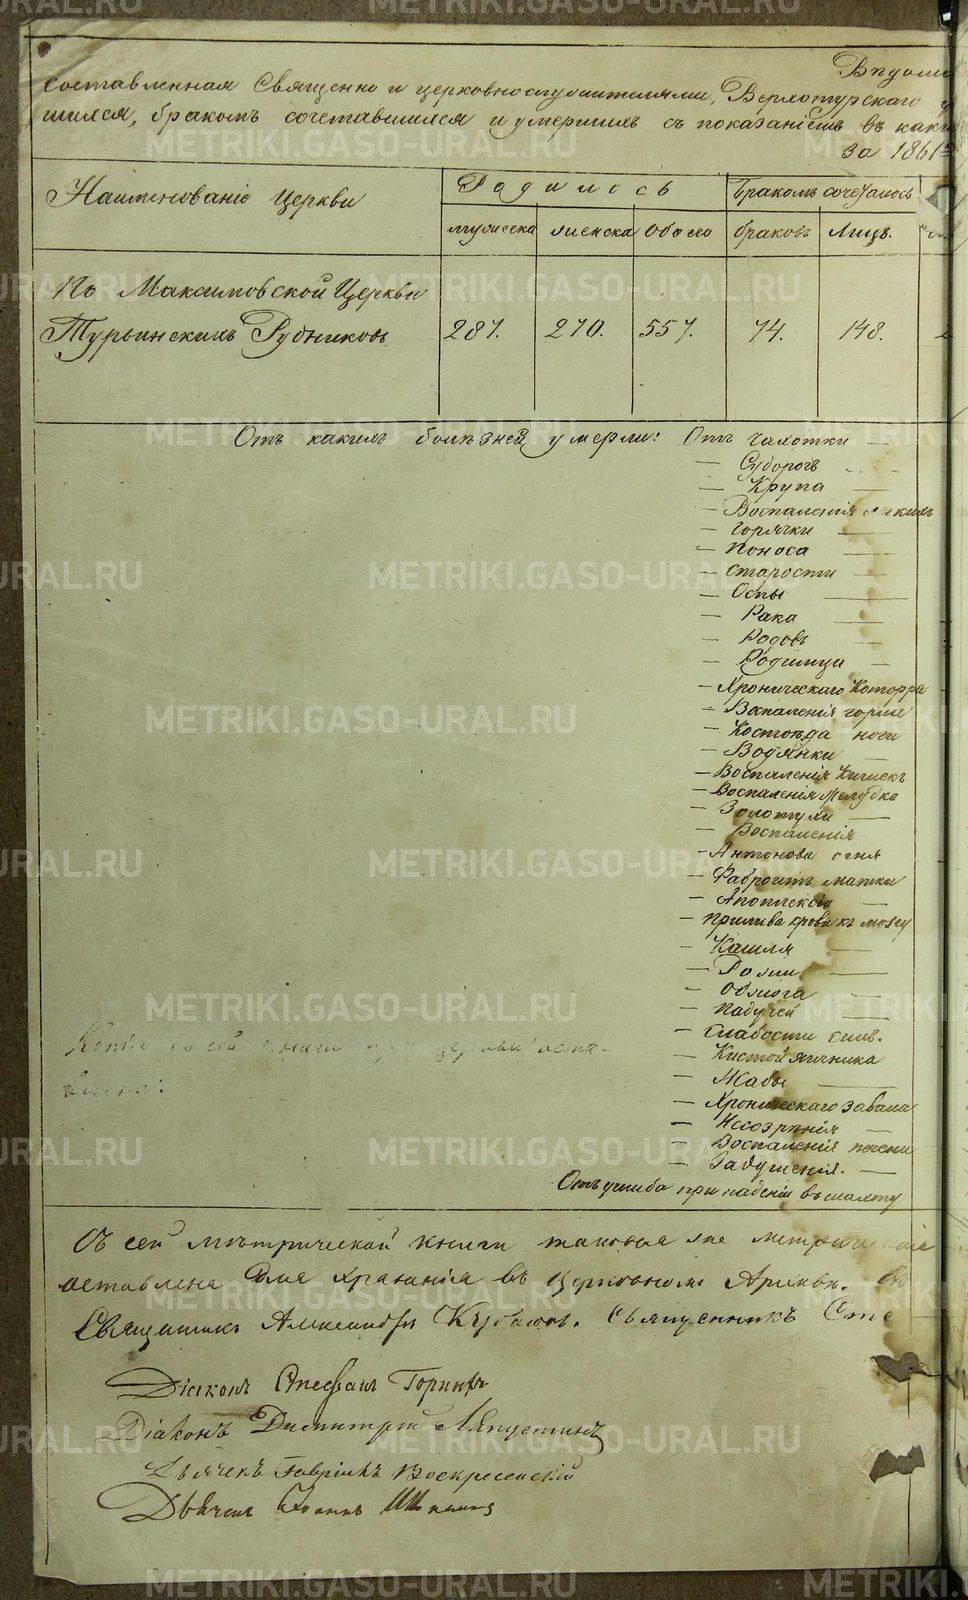 составленная Священно и церковнослужителями, Верхотурскаго
шихся, бракомъ сочетавшихся и умершихъ съ показанiемъ въ
за 1861
Наименованiе Церкви
Родилось
Бракомъ сочеталось
мужеска
женска
Обоего
браковъ
Лицъ.
Къ Максимовской Церкви
Турьинскихъ Рудниковъ
287.
270.
557.
74.
148.
Отъ какихъ болѣзней умерли:
Отъ Чахотки —
— Суборогъ
— Крупа —
— Воспаленiя
— Горячки —
— Поноса —
— Старости —
— Оспы —
— Рака —
— Родовъ —
— Родимца —
— Хроническаго Каторра
— Воспаленiя горла
— Костоѣда ноги
— Водянки —
— Воспаленiя Кишекъ
— Воспаленiя Желудка
— Золотухи —
— Воспаленiя
— Антонова огня
— матки
— Апоплексiи —
— Прилива крови къ мозгу
— Кашля —
— Рожи —
— Обжога —
— Падучей —
— Слабости силъ.
— Кистой яичника
— Жабы —
— Хроническаго завала
— Изозрѣнiя —
— Воспаленiя печени
— Задушенiя. —
Отъ ушиба при паденiи въ шахту
Копiя съ сей книги при церкви оста-
влена.
Съ сей мѣтрической книги таковая же метрическая
оставлена для храненiя въ Церковномъ Архивѣ.
Священникъ Александръ Священникъ Сте
Дiаконъ Стефанъ Горинъ
Дiаконъ Димитрiй Ляпустинъ
Дьячекъ Гаврiилъ Воскресенскiй
Дьячекъ Iоаннъ
METRIKI.GASO-URAL.RU